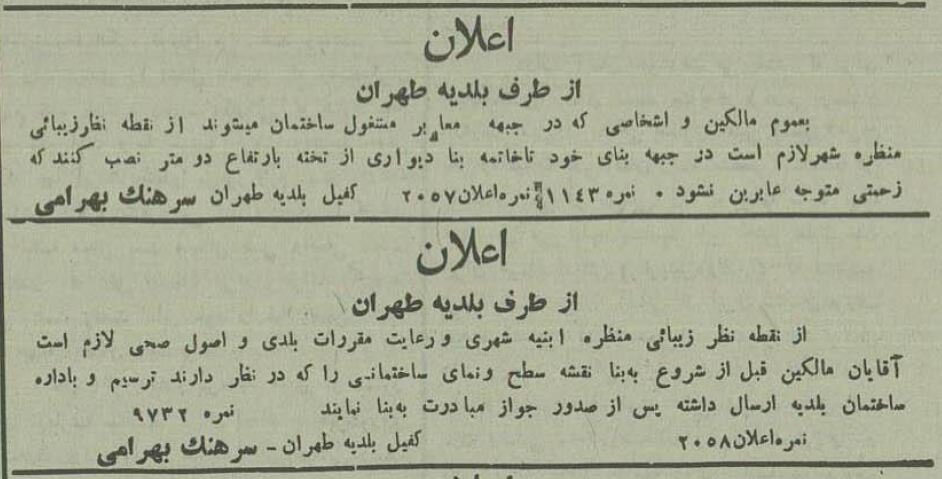 اعلان
از طرف بلدیه طهران
بعموم مالکین و اشخاصی که در جبهه معابر مشغول ساختمان میشوند از نقطه نظر زیبائی
منظره شهر لازم است در جبهه بنای خود تا خاتمه بنا دیواری از تخته بارتفاع دو متر نصب کنند که
زحمتی متوجه عابرین نشود . نمره ۱۱۴۳ نمره اعلان ۲۰۵۷ کفیل بلدیه طهران سرهنك بهرامی
اعلان
از طرف بلدیه طهران
از نقطه نظر زیبائی منظره ابنیه شهری و رعایت مقررات بلدی و اصول صحی لازم است
آقایان مالکین قبل از شروع به‌بنا نقشه سطح و نمای ساختمانی را که در نظار دارند ترسیم و باداره
ساختمان بلدیه ارسال داشته پس از صدور جواز مبادرت به‌بنا نمایند نمره ۹۷۳۲
نمره اعلان ۲۰۵۸ کفیل بلدیه طهران - سرهنك بهرامی